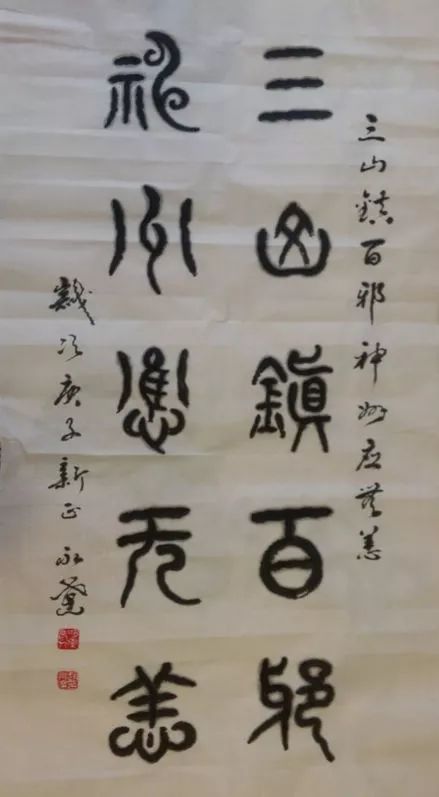 三山鎮百邪神州应無恙
三山鎮百邪
神州應无恙
歲次庚子新正永